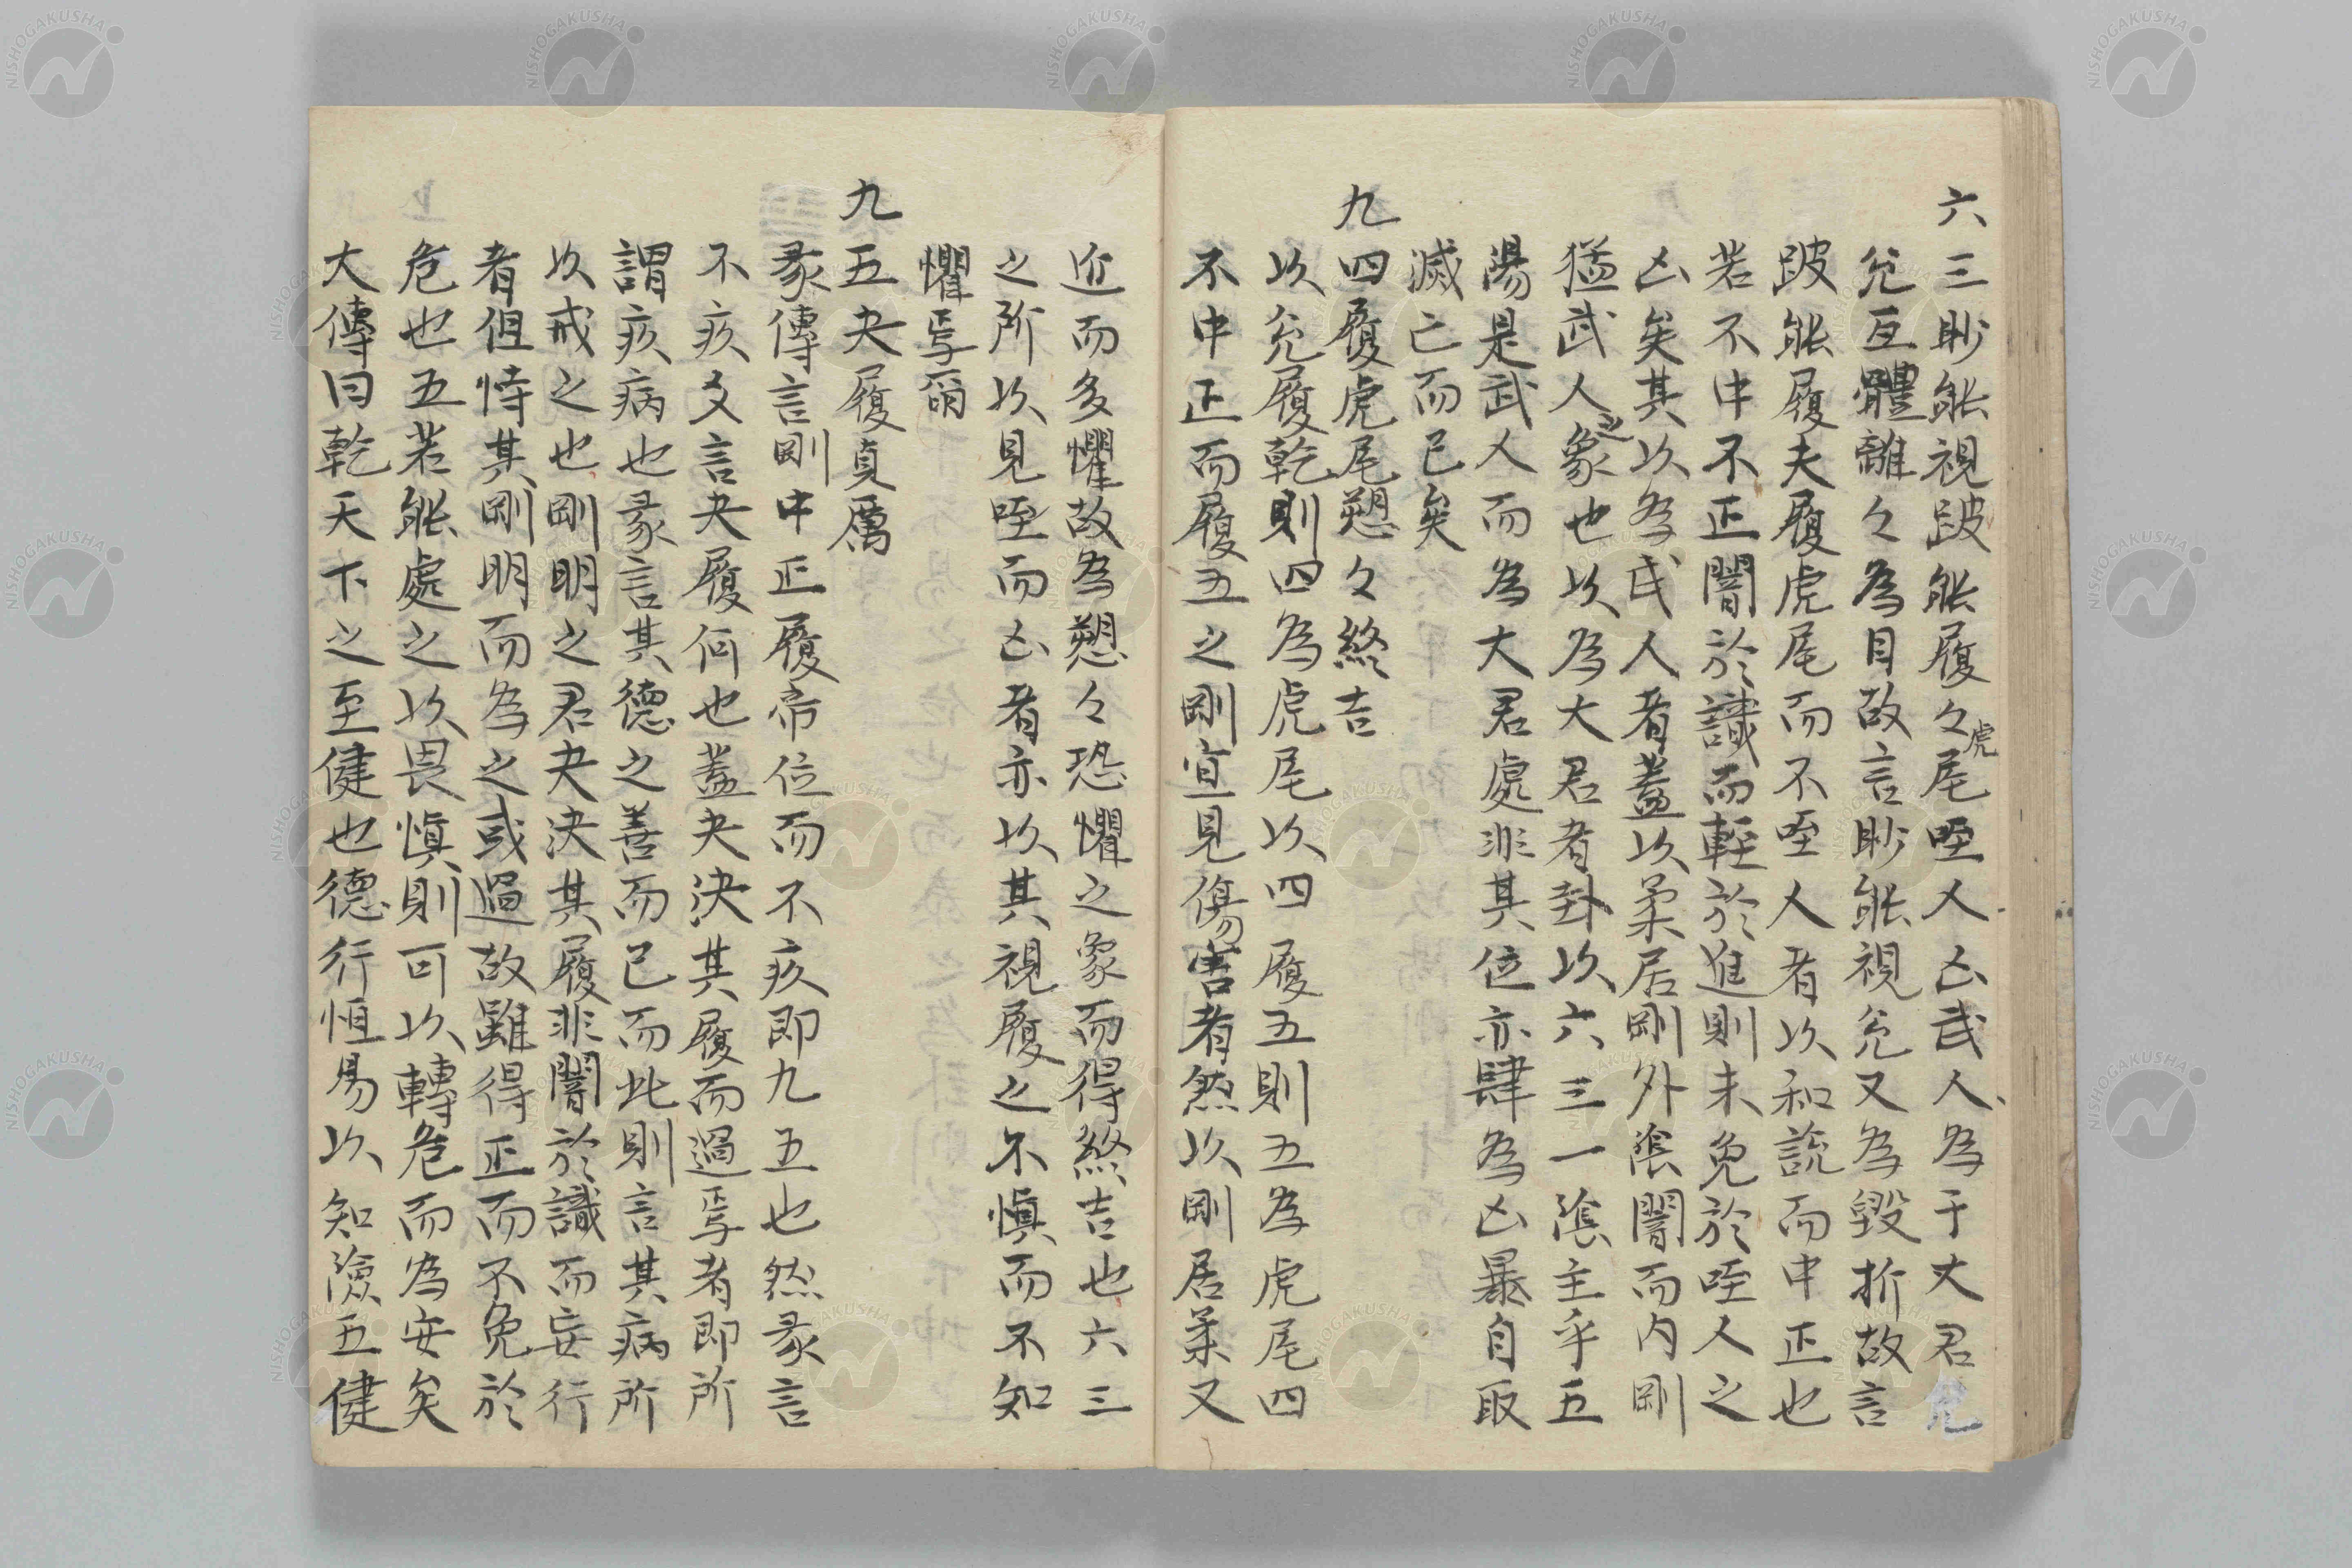 六三眇能視跛能履々虎尾咥人凶武人為于大君
兌互體離々為目故言眇能視兌又為毀折故言
跛能履夫履虎尾而不咥人者以和說而中正也
若不中不正闇於識而輕於進則未免於咥人之
凶矣其以為武人者蓋以柔居剛外陰闇而内剛
猛武人之象也以為大君者卦以六三一陰主乎五
陽是武人而為大君處非其位亦肆為凶暴自取
滅亡而已矣
九四履虎尾愬々終吉
以兌履乾則四為虎尾以四履五則五為虎尾四
不中正而履五之剛宜見傷害者然以剛居柔又
近而多懼故為愬々恐懼之象而得終吉也六三
之所以見咥而凶者亦以其視履之不慎而不知
懼焉爾
九五夬履貞厲
彖傳言剛中正履帝位而不疚即九五也然彖言
不疚爻言夬履何也蓋夬決其履而過焉者即所
謂疚病也彖言其德之善而已而此則言其病所
以戒之也剛明之君夬決其履非闇於識而妄行
者但恃其剛明而為之或過故雖得正而不免於
危也五若能處之以畏慎則可以轉危而為安矣
大傳曰乾天下之至健也德行恒易以知險五健